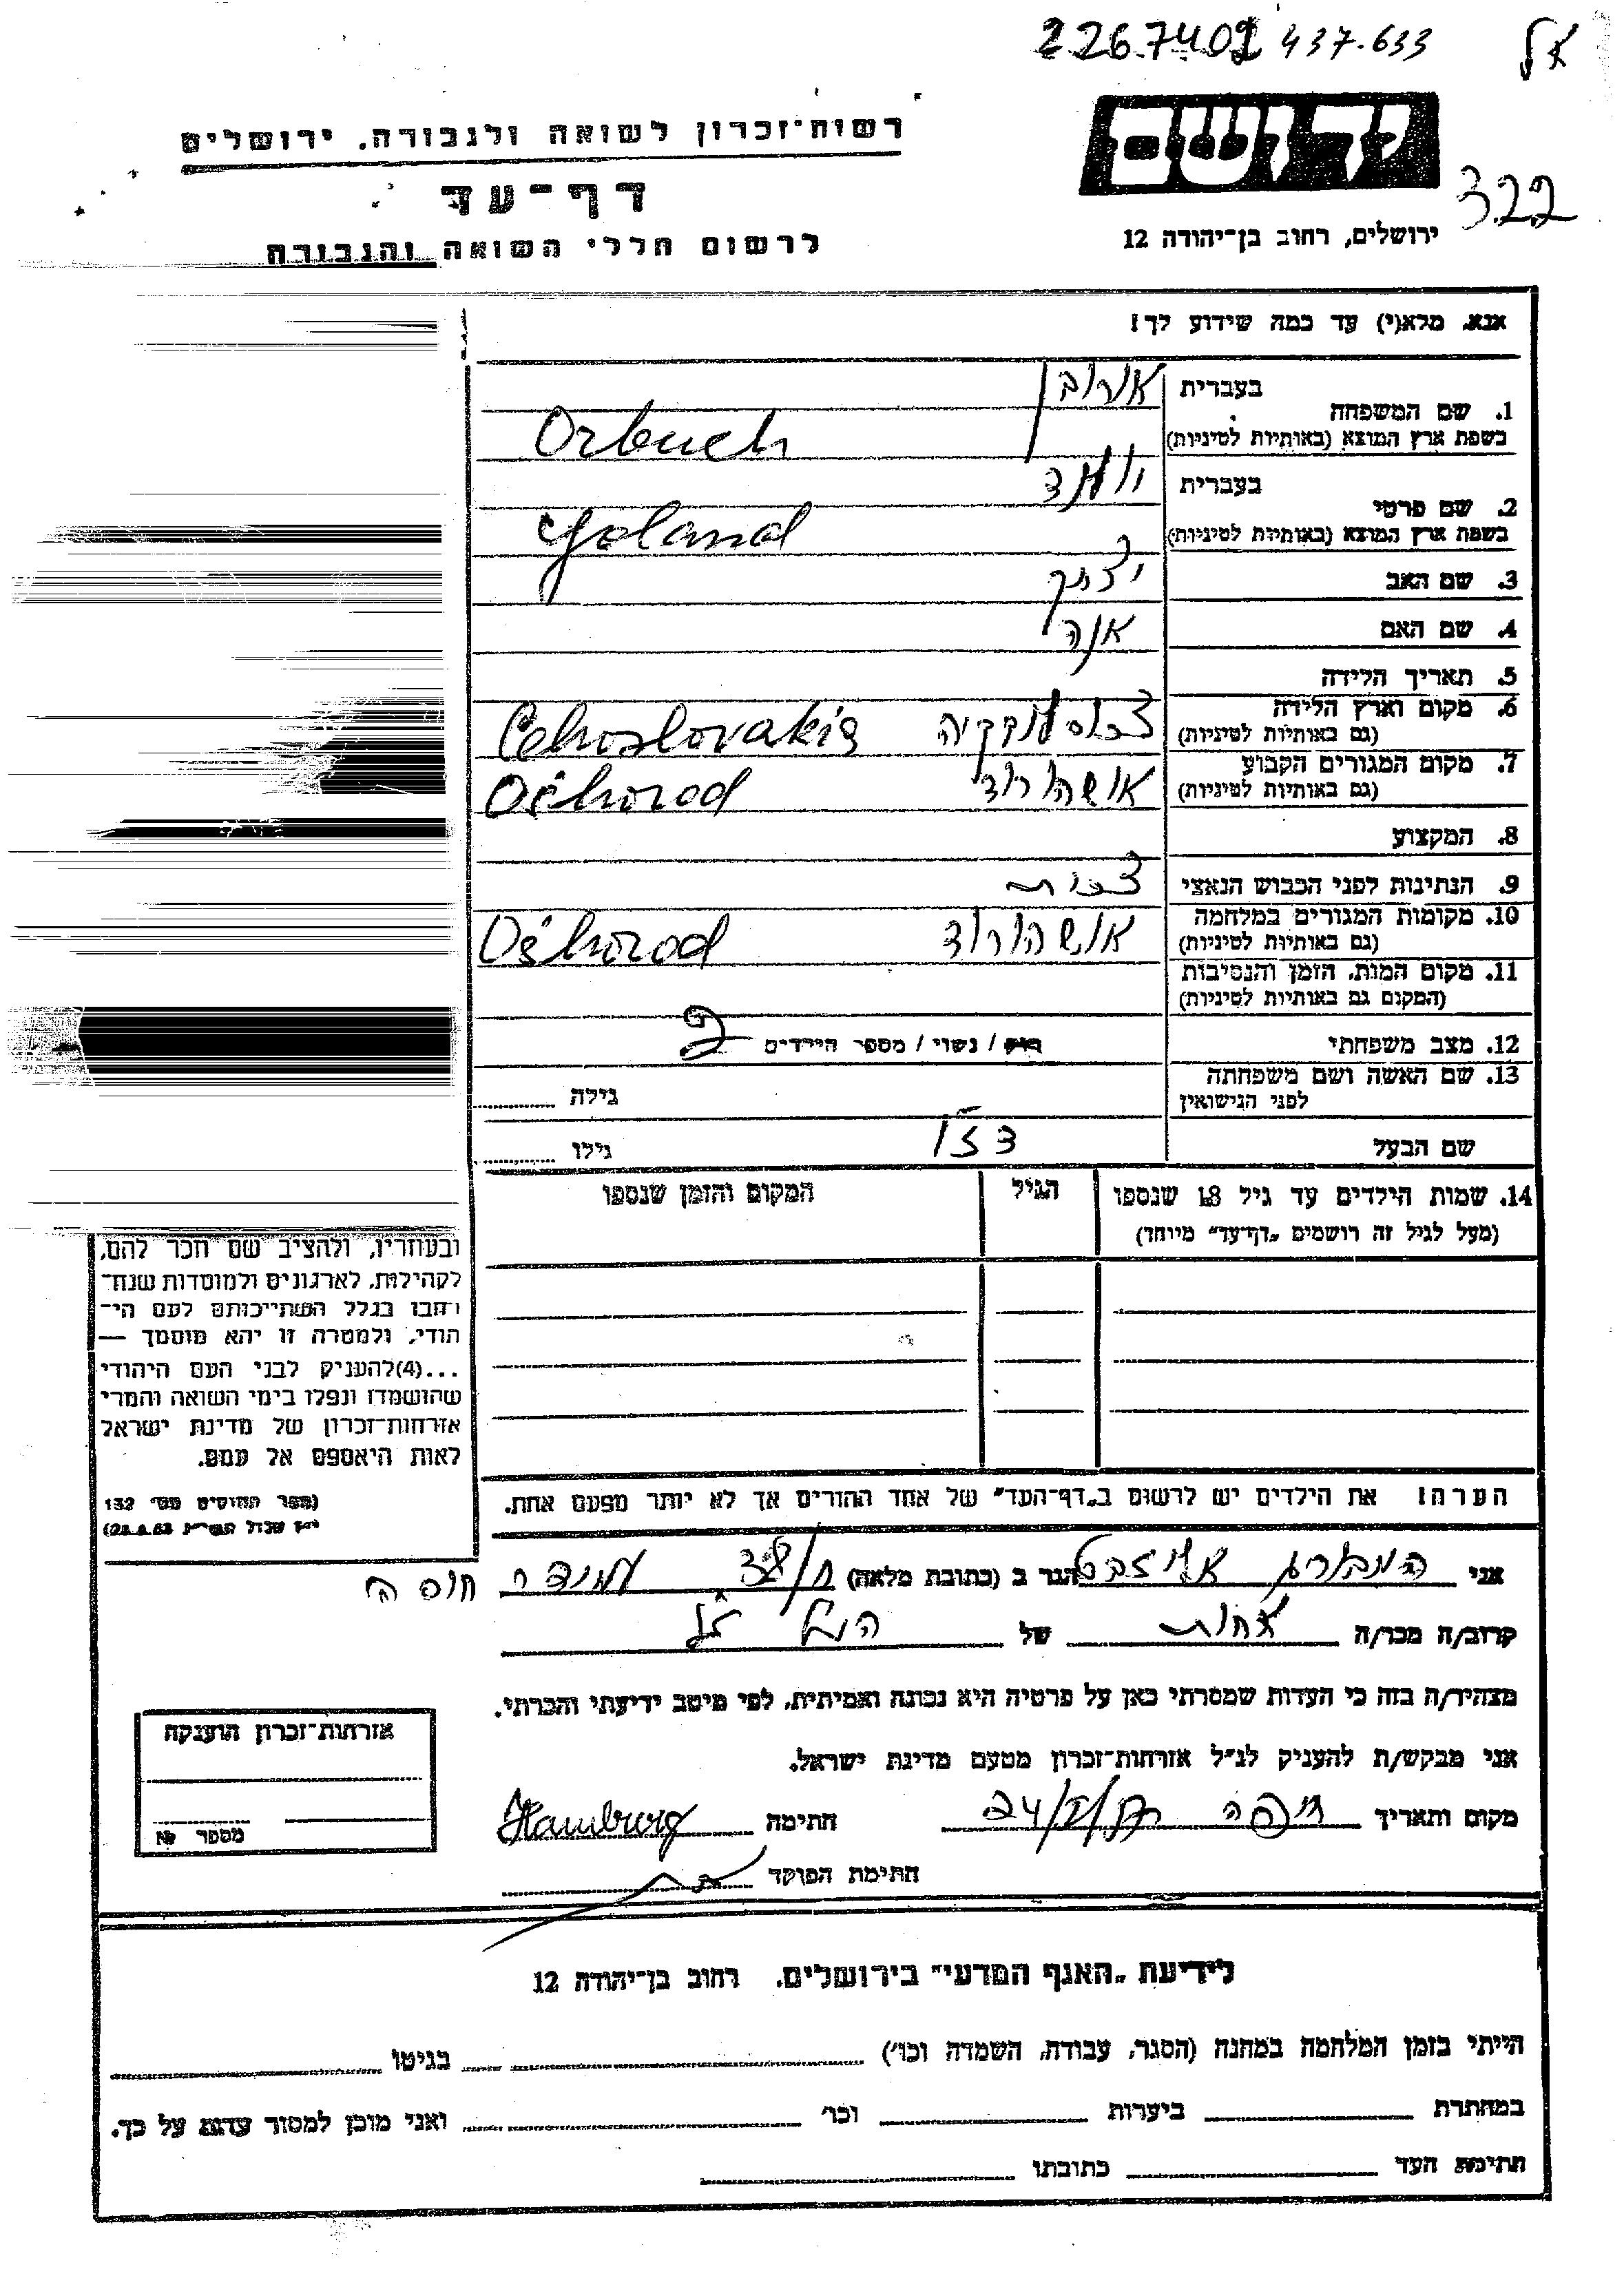 2267402 437.633
יד ושם
322
ירושלים, רחוב בן־יהודה 12
רשות־זכרון לשואה ולגבורה. ירושלים
דף־עד
לרשום חללי השואה והגבורה
אנא, מלא(י) עד כמה שידוע לך!
1. שם המשפחה
בעברית
בשפת ארץ המוצא (באותיות לטיניות)
Orbuch
2. שם פרטי
בעברית
יולנד
בשפת ארץ המוצא (באותיות לטיניות)
Yoland
3. שם האב יצחק
4. שם האם אנה
5. תאריך הלידה
6. מקום וארץ הלידה
(גם באותיות לטיניות)
צכוסלובקיה Cehoslovakia
7. מקום המגורים הקבוע
(גם באותיות לטיניות)
אושהורוד Oćhorod
8. המקצוע
9. הנתינות לפני הכבוש הנאצי צכית
10. מקומות המגורים במלחמה
(גם באותיות לטיניות)
אושהורוד Ośhorod
11. מקום המות, הזמן והנסיבות
(המקום גם באותיות לטיניות)
12. מצב משפחתי רווק / נשוי / מספר הילדים 2
13. שם האשה ושם משפחתה
לפני הנישואין
גילה
שם הבעל
גילו
14. שמות הילדים עד גיל 18 שנספו
(מעל לגיל זה רושמים „דף־עד” מיוחד)
הגיל
המקום והזמן שנספו
ובעוזריו, ולהציב שם וזכר להם,
לקהילות, לארגונים ולמוסדות שנח־
רבו בגלל השתייכותם לעם הי־
הודי, ולמטרה זו יהא מוסמך —
...(4)להעניק לבני העם היהודי
שהושמדו ונפלו בימי השואה והמרי
אזרחות־זכרון של מדינת ישראל
לאות היאספם אל עמם.
(ספר החוקים מס׳ 132
28.8.53)
הערה! את הילדים יש לרשום ב„דף־העד” של אחד ההורים אך לא יותר מפעם אחת.
אני המבורג אליזבט הגר ב (כתובת מלאה)
קרוב/ה מכר/ה אחות של הנ״ל
מצהיר/ה בזה כי העדות שמסרתי כאן על פרטיה היא נכונה ואמיתית, לפי מיטב ידיעתי והכרתי.
אני מבקש/ת להעניק לנ״ל אזרחות־זכרון מטעם מדינת ישראל.
מקום ותאריך חיפה 24/ חתימה Hamburg
חתימת הפוקד
אזרחות־זכרון הוענקה
מספר №
לידיעת „האגף המדעי” בירושלים. רחוב בן־יהודה 12
הייתי בזמן המלחמה במחנה (הסגר, עבודה, השמדה וכו׳) בגיטו
במחתרת ביערות וכו׳ ואני מוכן למסור עדות על כך.
חתימת העד כתובתו